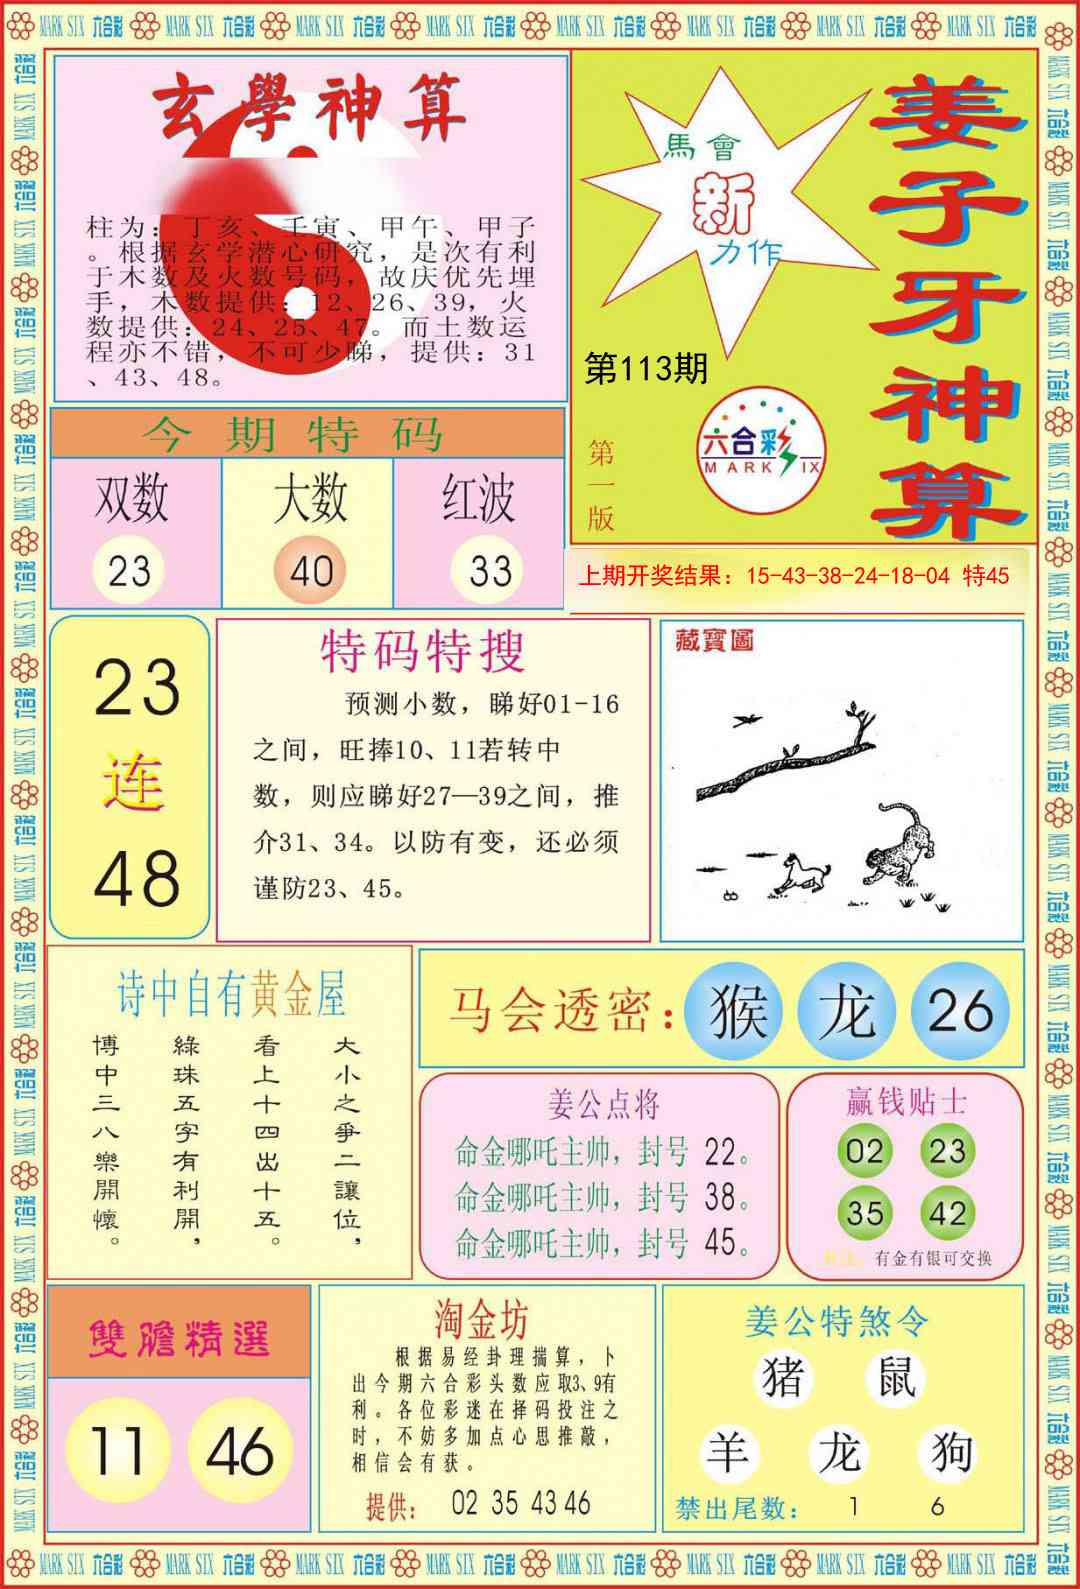 玄學神算
柱为：丁亥、壬寅、甲午、甲子
。根据玄学潜心研究，是次有利
于木数及火数号码，故庆优先埋
手，木数提供：12、26、39，火
数提供：24、25、47。而土数运
程亦不错，不可少睇，提供：31
、43、48。
馬會
新
力作
姜子牙神算
第113期
六合彩
MARK SIX
第一版
今期特码
双数 大数 红波
23 40 33
上期开奖结果：15-43-38-24-18-04 特45
23
连
48
特码特搜
预测小数，睇好01-16
之间，旺捧10、11若转中
数，则应睇好27—39之间，推
介31、34。以防有变，还必须
谨防23、45。
藏寶圖
诗中自有黄金屋
大小之爭二讓位，
看上十四出十五。
綠珠五字有利開，
博中三八樂開懷。
马会透密：猴 龙 26
姜公点将
命金哪吒主帅，封号 22。
命金哪吒主帅，封号 38。
命金哪吒主帅，封号 45。
赢钱贴士
02 23
35 42
有金有银可交换
雙膽精選
11 46
淘金坊
根据易经卦理揣算，卜
出今期六合彩头数应取3、9有
利。各位彩迷在择码投注之
时，不妨多加点心思推敲，
相信会有获。
提供： 02 35 43 46
姜公特煞令
猪 鼠
羊 龙 狗
禁出尾数： 1 6
MARK SIX 六合彩